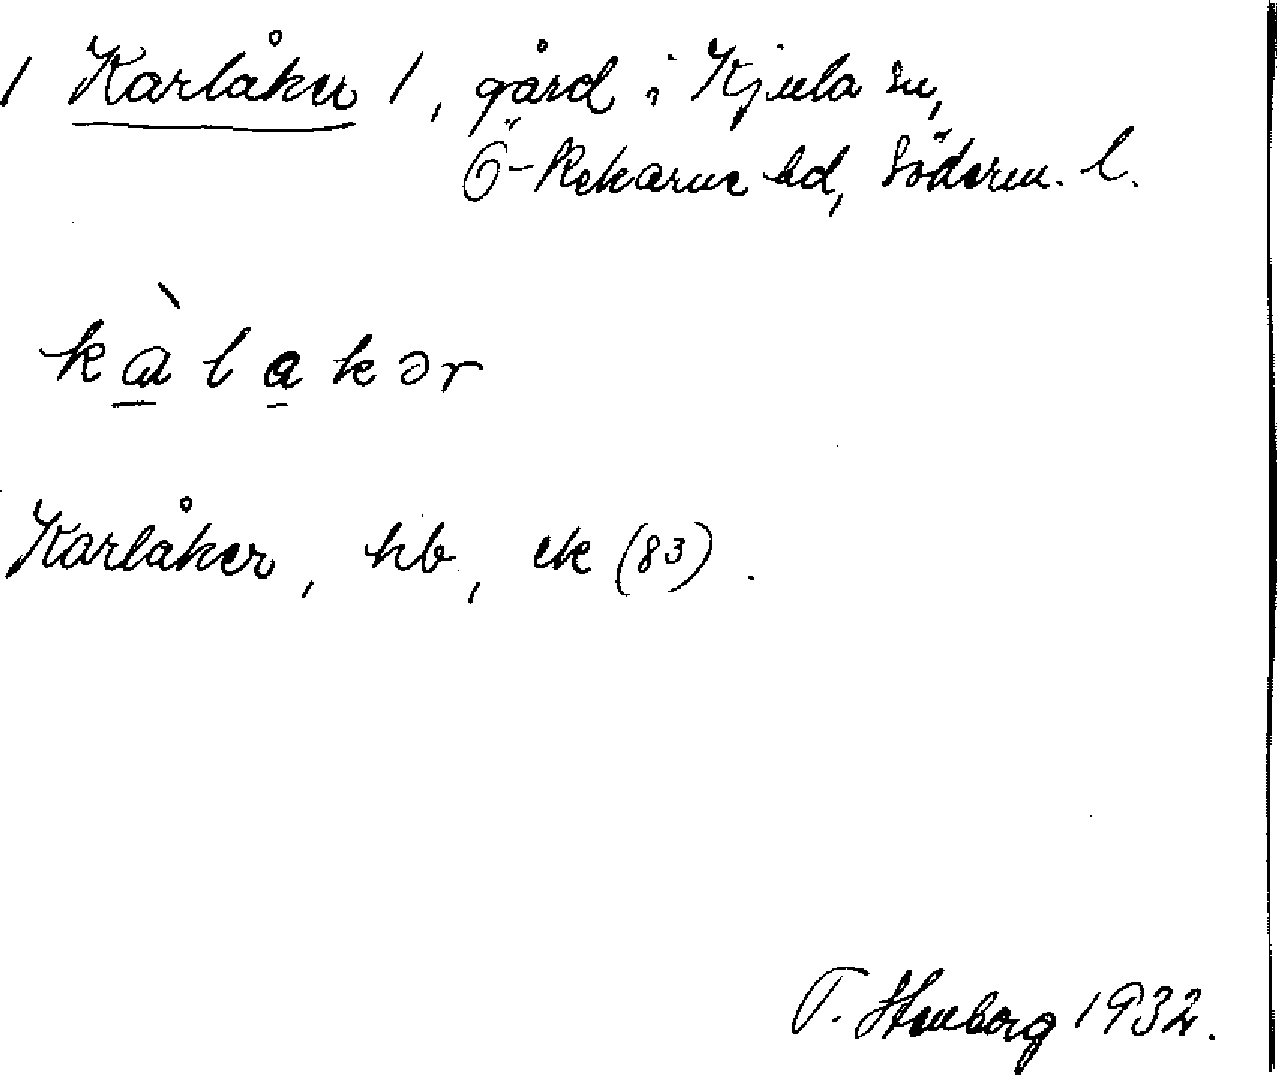 / Karlåker /, gård i Kjula sn,
Ö-Rekarne hd, Söderm. l.
kàlakər
Karlåker, hb, ek (83).
T. Stenborg 1932.